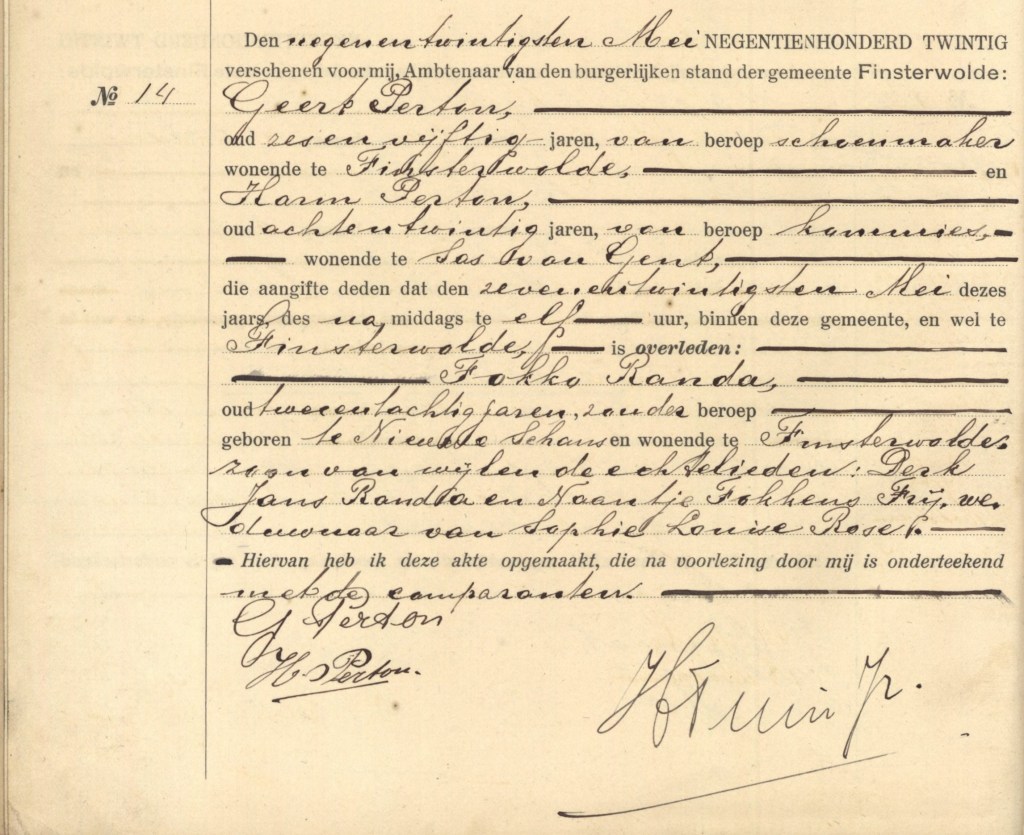 Den negenentwintigsten Mei NEGENTIENHONDERD TWINTIG
verschenen voor mij, Ambtenaar van den burgerlijken stand der gemeente Finsterwolde:
No 14
Geert Perton,
oud zesenvijftig jaren, van beroep schoenmaker
wonende te Finsterwolde, en
Harm Perton,
oud achtentwintig jaren, van beroep kommies,
wonende te Sas van Gent,
die aangifte deden dat den zevenentwintigsten Mei dezes
jaars, des na middags te elf uur, binnen deze gemeente, en wel te
Finsterwolde, is overleden:
Fokko Randa,
oud tweeentachtig jaren, zonder beroep
geboren te Nieuwe Schans en wonende te Finsterwolde.
zoon van wijlen de echtelieden: Derk
Jans Randa en Naantje Fokkens Frij, we-
duwnaar van Sophie Louise Rose.
Hiervan heb ik deze akte opgemaakt, die na voorlezing door mij is onderteekend
met de comparanten.
G Perton
H. Perton.